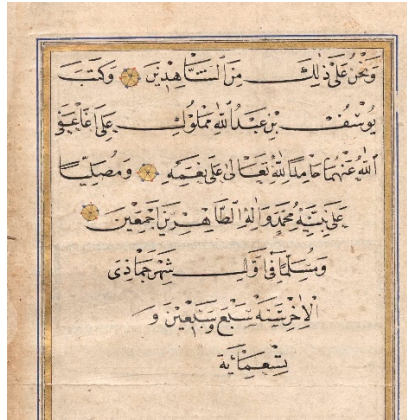 وَنَحْنُ عَلٰى ذٰلِكَ مِنَ الشَّاهِدِينَ وَكَتَبَ
يُوسُفُ بْنِ عَبْدُ اللّٰهِ مَمْلُوكِ عَلِى اٰغَا عَفَى
اللّٰهُ عَنْهُمَا حَامِدًا لِلّٰهِ تَعَالٰى عَلٰى نِعَمِهِ وَمُصَلِّيًا
عَلٰى نَبِيِّهِ مُحَمَّدٍ وَاٰلِهِ الطَّاهِرِينَ اَجْمَعِينَ
وَمُسَلِّمًا فِى اَوَّلِ شَهْرِ جَمَاذَى
الْاٰخِرِ سَنَةَ سَبْعٍ وَسَبْعِينَ وَ
تِسْعِمِائَةٍ